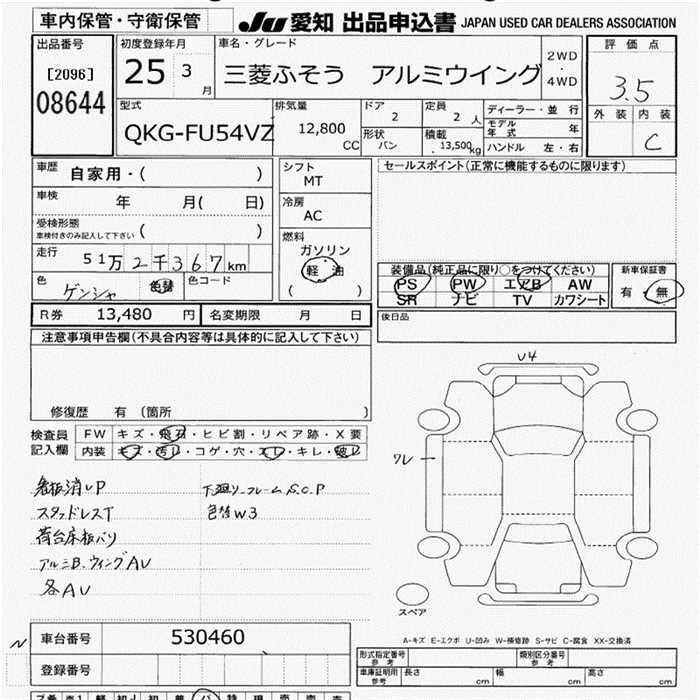 車内保管・守衛保管
JU 愛知 出品申込書 JAPAN USED CAR DEALERS ASSOCIATION
出品番号
[2096]
08644
初度登録年月
25 3 月
車名・グレード
三菱ふそう アルミウイング
2WD
・
4WD
評価点
3.5
外装 内装
C
型式
QKG-FU54VZ
排気量
12,800 CC
ドア
2
形状
バン
定員
2 人
積載
13,500 kg
ディーラー・並行
モデル年式 年
ハンドル 左・右
車歴
自家用・( )
車検
年 月( 日)
受検形態
車検付きのみ記入して下さい ( )
走行
51万2千367km
色
ゲンシャ
色替
色コード
シフト
MT
冷房
AC
燃料
ガソリン
軽油
( )
セールスポイント(正常に機能するものに限ります)
装備品(純正品に限り○をつけてください)
PS PW エアB AW
SR ナビ TV カワシート
新車保証書
有・無
後日品
R券 13,480 円
名変期限 月 日
注意事項申告欄(不具合内容等は具体的に記入して下さい)
修復歴 有 (箇所 )
検査員
記入欄
FW キズ・飛石・ヒビ割・リペア跡・X要
内装 キズ・汚レ・コゲ・穴・スレ・キレ・破レ
看板消しP
スタッドレスT
荷台床板バリ
アルミB、ウィングAU
各AU
下廻り・フレームS.C.P
色替W3
U4
ワレ
スペア
A-キズ E-エクボ U-凹み W-補修跡 S-サビ C-腐食 XX-交換済
N
車台番号 530460
登録番号
形式指定番号
参考
類別区分番号
参考
車庫証明用
参考
長さ cm 幅 cm 高さ cm